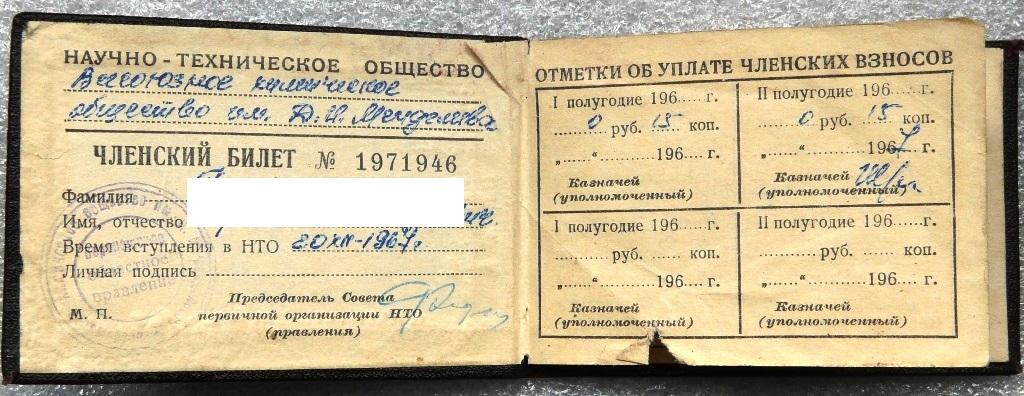 НАУЧНО-ТЕХНИЧЕСКОЕ ОБЩЕСТВО
Всесоюзное химическое
общество им. Д. И. Менделеева
ЧЛЕНСКИЙ БИЛЕТ № 1971946
Фамилия
Имя, отчество
Время вступления в НТО 20 XII-1967г
Личная подпись
М. П.
Председатель Совета
первичной организации НТО
(правления)
правление
ОТМЕТКИ ОБ УПЛАТЕ ЧЛЕНСКИХ ВЗНОСОВ
I полугодие 196...... г.
0 руб. 15 коп.
„......“ ............196.... г.
Казначей
(уполномоченный)
II полугодие 196..... г.
0 руб. 15 коп.
„......“ ............1967 г.
Казначей
(уполномоченный)
I полугодие 196...... г.
............руб. ........ коп.
„......“ ............196.... г.
Казначей
(уполномоченный)
II полугодие 196..... г.
............руб. ........ коп.
„......“ ............196.... г.
Казначей
(уполномоченный)